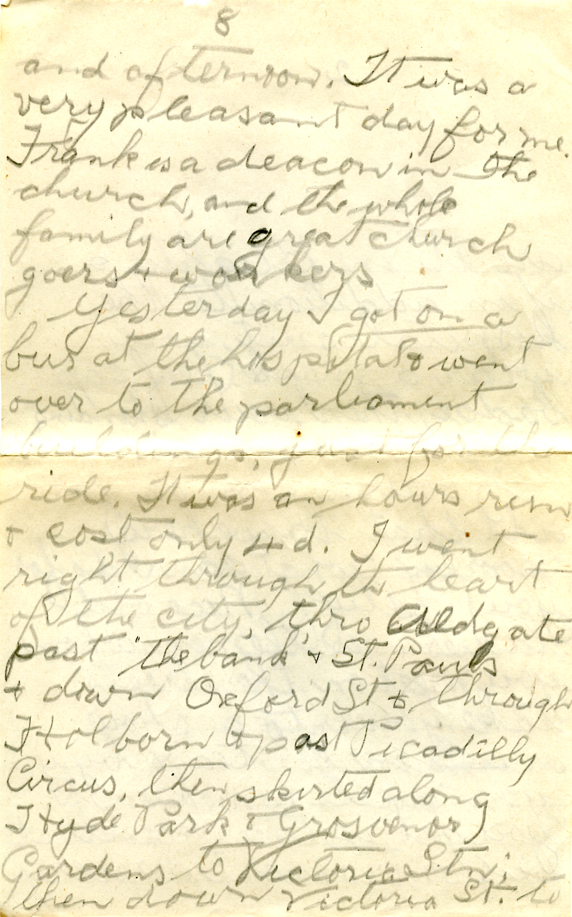 8
and afternoon. It was a
very pleasant day for me.
Frank is a deacon in the
church, and the whole
family are great church
goers + workers
Yesterday I got on a
bus at the hospital & went
over to the parliament
buildings, just for the
ride. It was an hours run
& cost only 4d. I went
right through the heart
of the city, thro Aldgate
past "the bank" & St. Pauls
& down Oxford St & through
Holborn & past Picadilly
Circus, then skirted along
Hyde Park & Grosvenor
Gardens to Victoria Stn;
then down Victoria St. to